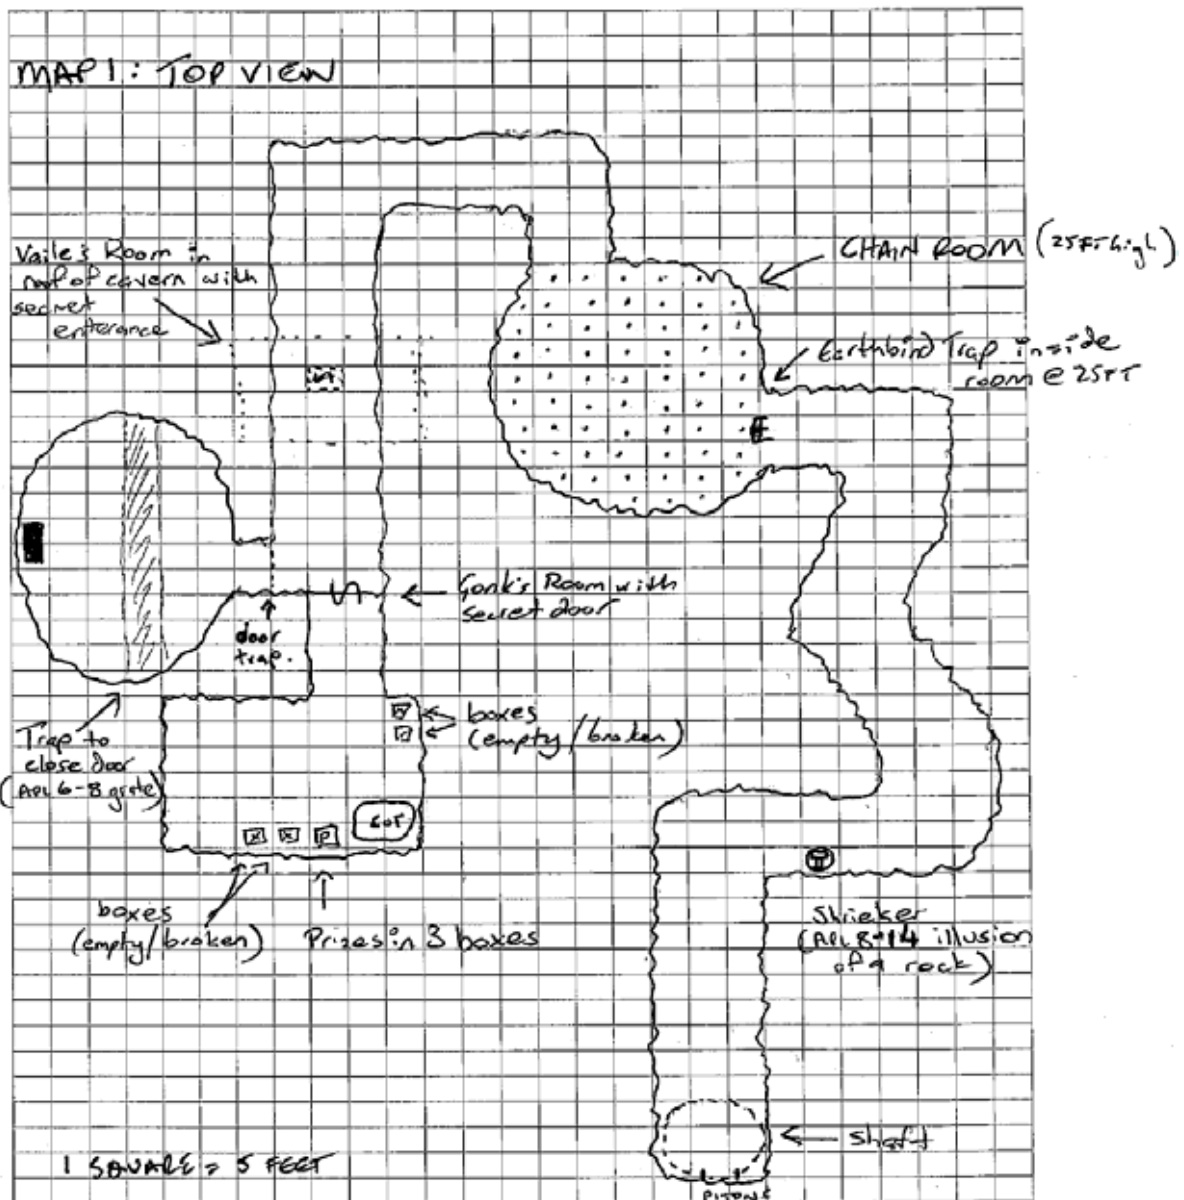 MAP 1: TOP VIEW
Vaile's Room in
roof of cavern with
secret
enterance
CHAIN ROOM (25FT high)
Earthbind Trap inside
room @ 25FT
Gonk's Room with
secret door
door
trap.
Trap to
close door
(APL 6-8 grate)
boxes
(empty/broken)
COT
X
X
P
boxes
(empty/broken)
Prizes in 3 boxes
Shrieker
(APL 8-14 illusion
of a rock)
shaft
1 SQUARE = 5 FEET
PITONS